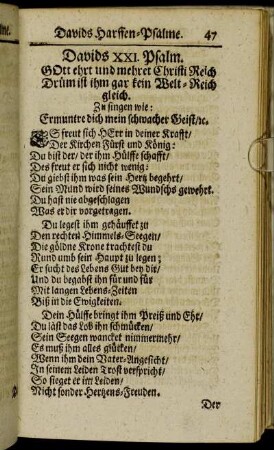 Davids Harffen-Psalme. 47
Davids XXI. Psalm.
GOtt ehrt und mehret Christi Reich
Drüm ist ihm gar kein Welt-Reich
gleich.
Zu singen wie:
Ermuntre dich mein schwacher Geist/ ꝛc.
ES freut sich HErr in deiner Krafft/
Der Kirchen Fürst und König:
Du bist der/ der ihm Hülffe schafft/
Des freut er sich nicht wenig:
Du giebst ihm was sein Hertz begehrt/
Sein Mund wird seines Wundschs gewehrt.
Du hast nie abgeschlagen
Was er dir vorgetragen.
Du legest ihm gehäuffet zu
Den rechten Himmels-Seegen/
Die göldne Krone trachtest du
Rund umb sein Haupt zu legen;
Er sucht des Lebens Gut bey dir/
Und du begabst ihn für und für
Mit langen Lebens-Zeiten
Biß in die Ewigkeiten.
Dein Hülffe bringt ihm Preiß und Ehr/
Du läst das Lob ihn schmücken/
Sein Seegen wancket nimmermehr/
Es muß ihm alles glücken/
Wenn ihm dein Vater-Angesicht/
In seinem Leiden Trost verspricht/
So sieget er im Leiden/
Nicht sonder Hertzens-Freuden.
Der